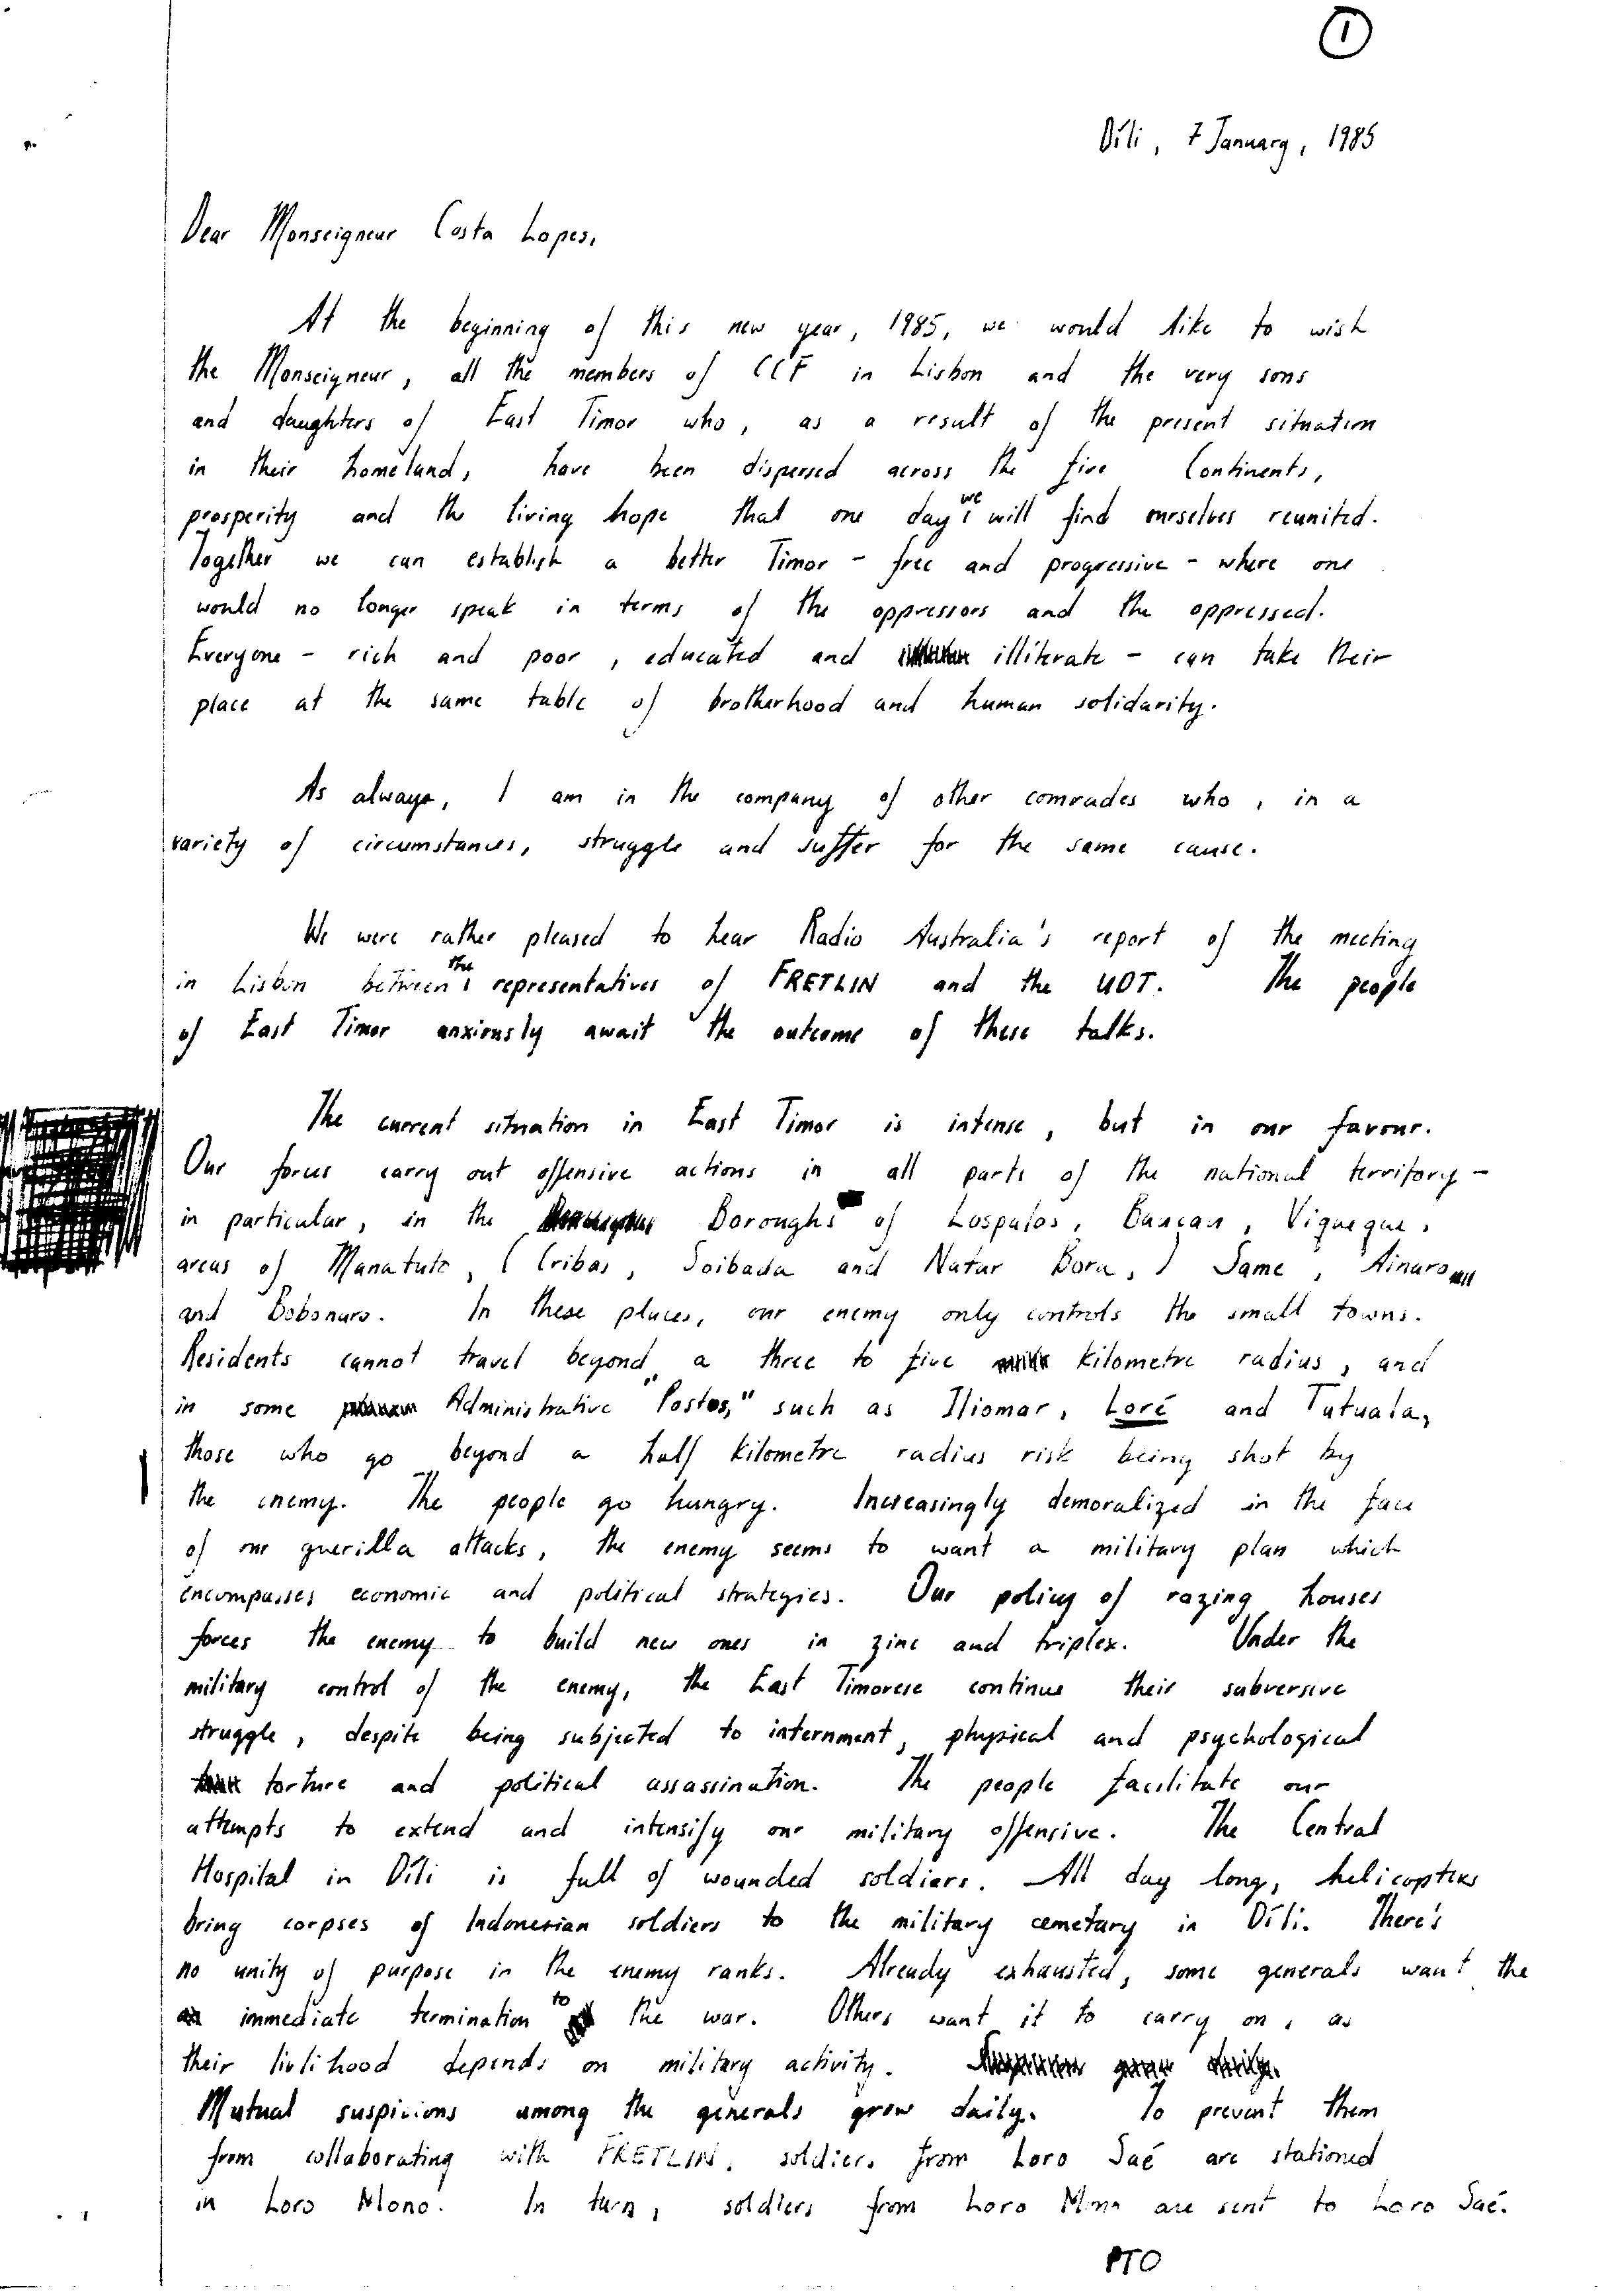 1
Díli, 7 January, 1985
Dear Monseigneur Costa Lopes,
At the beginning of this new year, 1985, we would like to wish
the Monseigneur, all the members of CCF in Lisbon and the very sons
and daughters of East Timor who, as a result of the present situation
in their homeland, have been dispersed across the five Continents,
prosperity and the living hope that one day we will find ourselves reunited.
Together we can establish a better Timor - free and progressive - where one
would no longer speak in terms of the oppressors and the oppressed.
Everyone - rich and poor, educated and illiterate - can take their
place at the same table of brotherhood and human solidarity.
As always, I am in the company of other comrades who, in a
variety of circumstances, struggle and suffer for the same cause.
We were rather pleased to hear Radio Australia's report of the meeting
in Lisbon between the representatives of FRETLIN and the UDT. The people
of East Timor anxiously await the outcome of these talks.
The current situation in East Timor is intense, but in our favour.
Our forces carry out offensive actions in all parts of the national territory -
in particular, in the Boroughs of Lospalos, Baucau, Viqueque,
areas of Manatuto, (Cribas, Soibada and Natar Bora,) Same, Ainaro
and Bobonaro. In these places, our enemy only controls the small towns.
Residents cannot travel beyond a three to five kilometre radius, and
in some Administrative "Postos," such as Iliomar, Loré and Tutuala,
those who go beyond a half kilometre radius risk being shot by
the enemy. The people go hungry. Increasingly demoralized in the face
of our guerilla attacks, the enemy seems to want a military plan which
encompasses economic and political strategies. Our policy of razing houses
forces the enemy to build new ones in zinc and triplex. Under the
military control of the enemy, the East Timorese continue their subversive
struggle, despite being subjected to internment, physical and psychological
torture and political assassination. The people facilitate our
attempts to extend and intensify our military offensive. The Central
Hospital in Díli is full of wounded soldiers. All day long, helicopters
bring corpses of Indonesian soldiers to the military cemetary in Díli. There's
no unity of purpose in the enemy ranks. Already exhausted, some generals want the
immediate termination to the war. Others want it to carry on, as
their livlihood depends on military activity.
Mutual suspicions among the generals grow daily. To prevent them
from collaborating with FRETLIN, soldiers from Loro Saé are stationed
in Loro Mono. In turn, soldiers from Loro Mono are sent to Loro Saé.
PTO